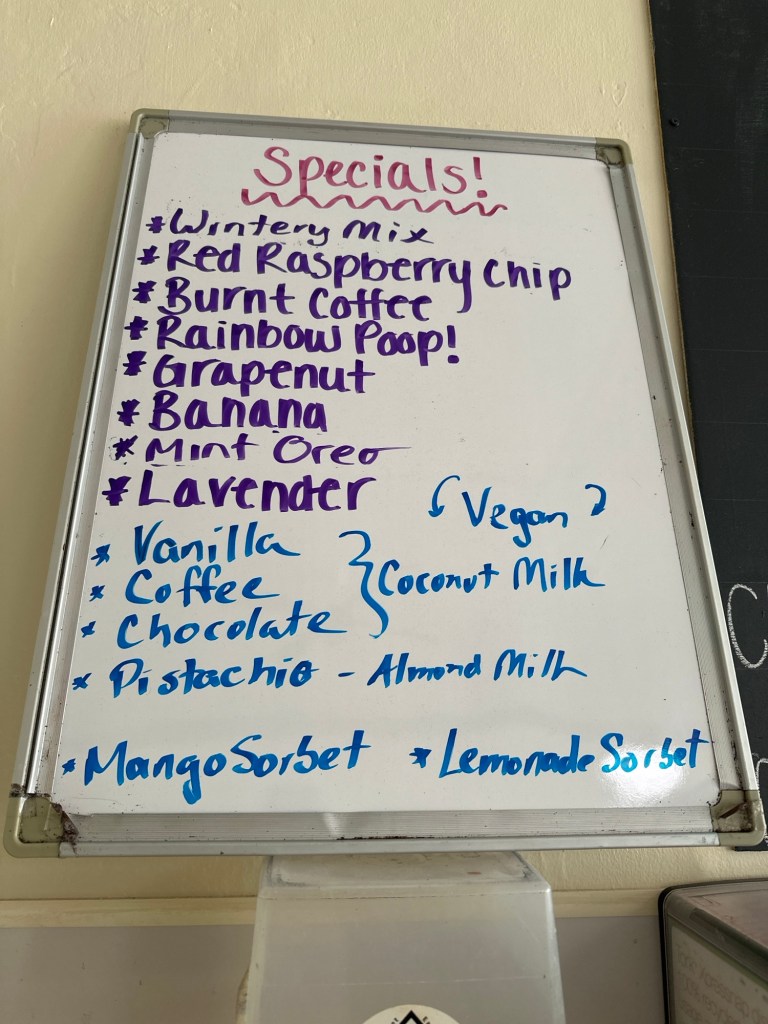 Specials!
*Wintery Mix
*Red Raspberry Chip
*Burnt Coffee
*Rainbow Poop!
*Grapenut
*Banana
*Mint Oreo
*Lavender
Vegan
* Vanilla
* Coffee } Coconut Milk
* Chocolate
* Pistachio - Almond Milk
*Mango Sorbet *Lemonade Sorbet